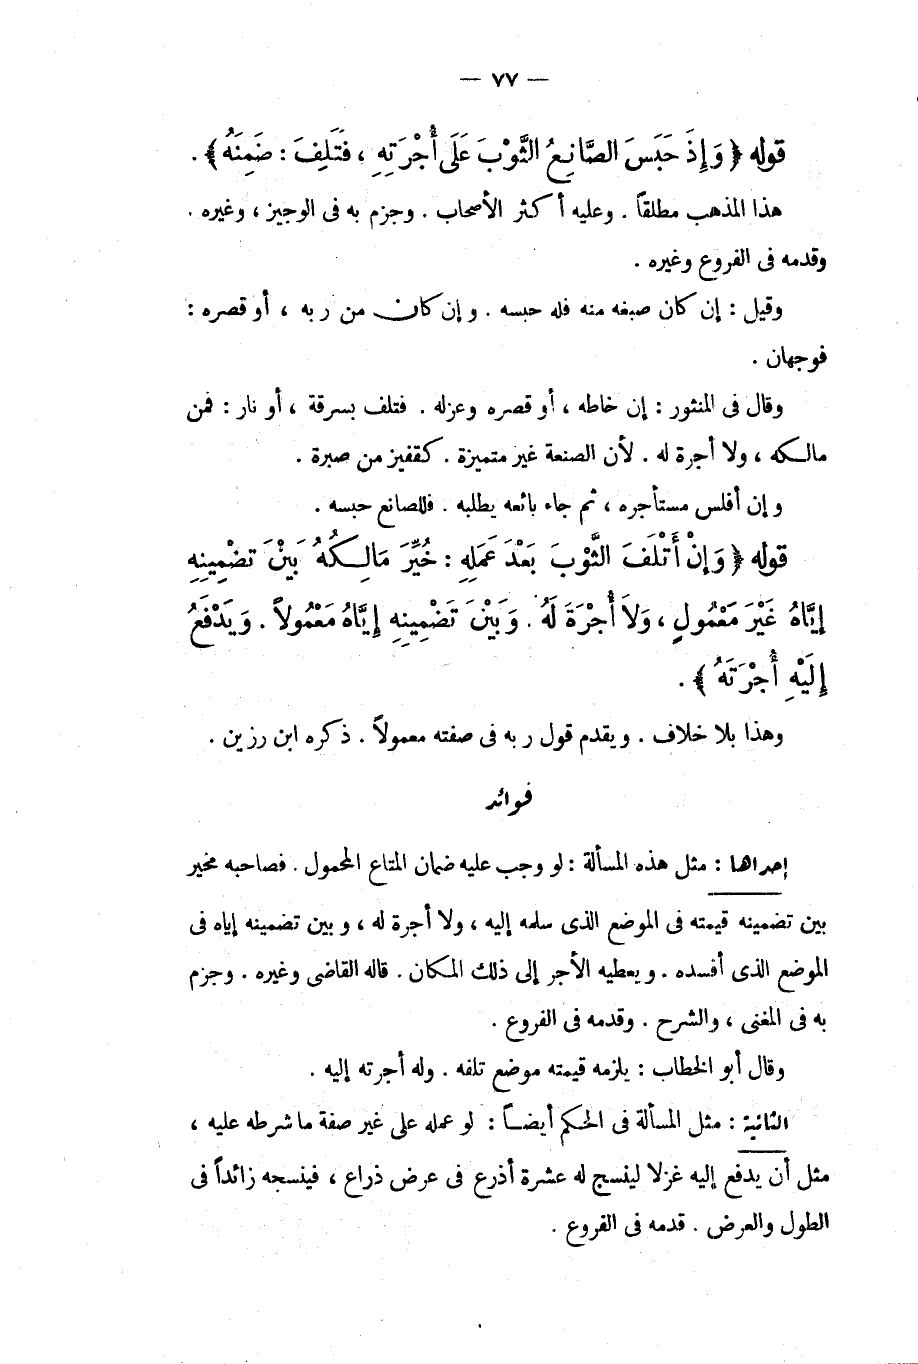 — ٧٧ —
قوله ﴿ وَإِذَ حَبَسَ الصَّانِعُ الثَّوْبَ عَلَى أُجْرَتِهِ ، فَتَلِفَ : ضَمِنَهُ ﴾ .
هذا المذهب مطلقاً . وعليه أكثر الأصحاب . وجزم به فى الوجيز ، وغيره .
وقدمه فى الفروع وغيره .
وقيل : إن كان صبغه منه فله حبسه . وإن كان من ربه ، أو قصره :
فوجهان .
وقال فى المنثور : إن خاطه ، أو قصره وعزله . فتلف بسرقة ، أو نار : فمن
مالكه ، ولا أجرة له . لأن الصنعة غير متميزة . كقفيز من صبرة .
وإن أفلس مستأجره ، ثم جاء بائعه يطلبه . فللصانع حبسه .
قوله ﴿ وَإِنْ أَتْلَفَ الثَّوْبَ بَعْدَ عَمَلِهِ : خُيِّرَ مَالِكُهُ بَيْنَ تضْمِينِهِ
إِيَّاهُ غَيْرَ مَعْمُولٍ ، وَلاَ أُجْرَةَ لَهُ . وَبَيْنَ تَضْمِينِهِ إِيَّاهُ مَعْمُولاً . وَيَدْفَعُ
إِلَيْهِ أُجْرَتَهُ ﴾ .
وهذا بلا خلاف . ويقدم قول ربه فى صفته معمولاً . ذكره ابن رزين .
فوائد
إحداها : مثل هذه المسألة : لو وجب عليه ضمان المتاع المحمول . فصاحبه مخير
بين تضمينه قيمته فى الموضع الذى سلمه إليه ، ولا أجرة له ، وبين تضمينه إياه فى
الموضع الذى أفسده . ويعطيه الأجر إلى ذلك المكان . قاله القاضى وغيره . وجزم
به فى المغنى ، والشرح . وقدمه فى الفروع .
وقال أبو الخطاب : يلزمه قيمته موضع تلفه . وله أجرته إليه .
الثانية : مثل المسألة فى الحكم أيضاً : لو عمله على غير صفة ما شرطه عليه ،
مثل أن يدفع إليه غزلا لينسج له عشرة أذرع فى عرض ذراع ، فينسجه زائداً فى
الطول والعرض . قدمه فى الفروع .